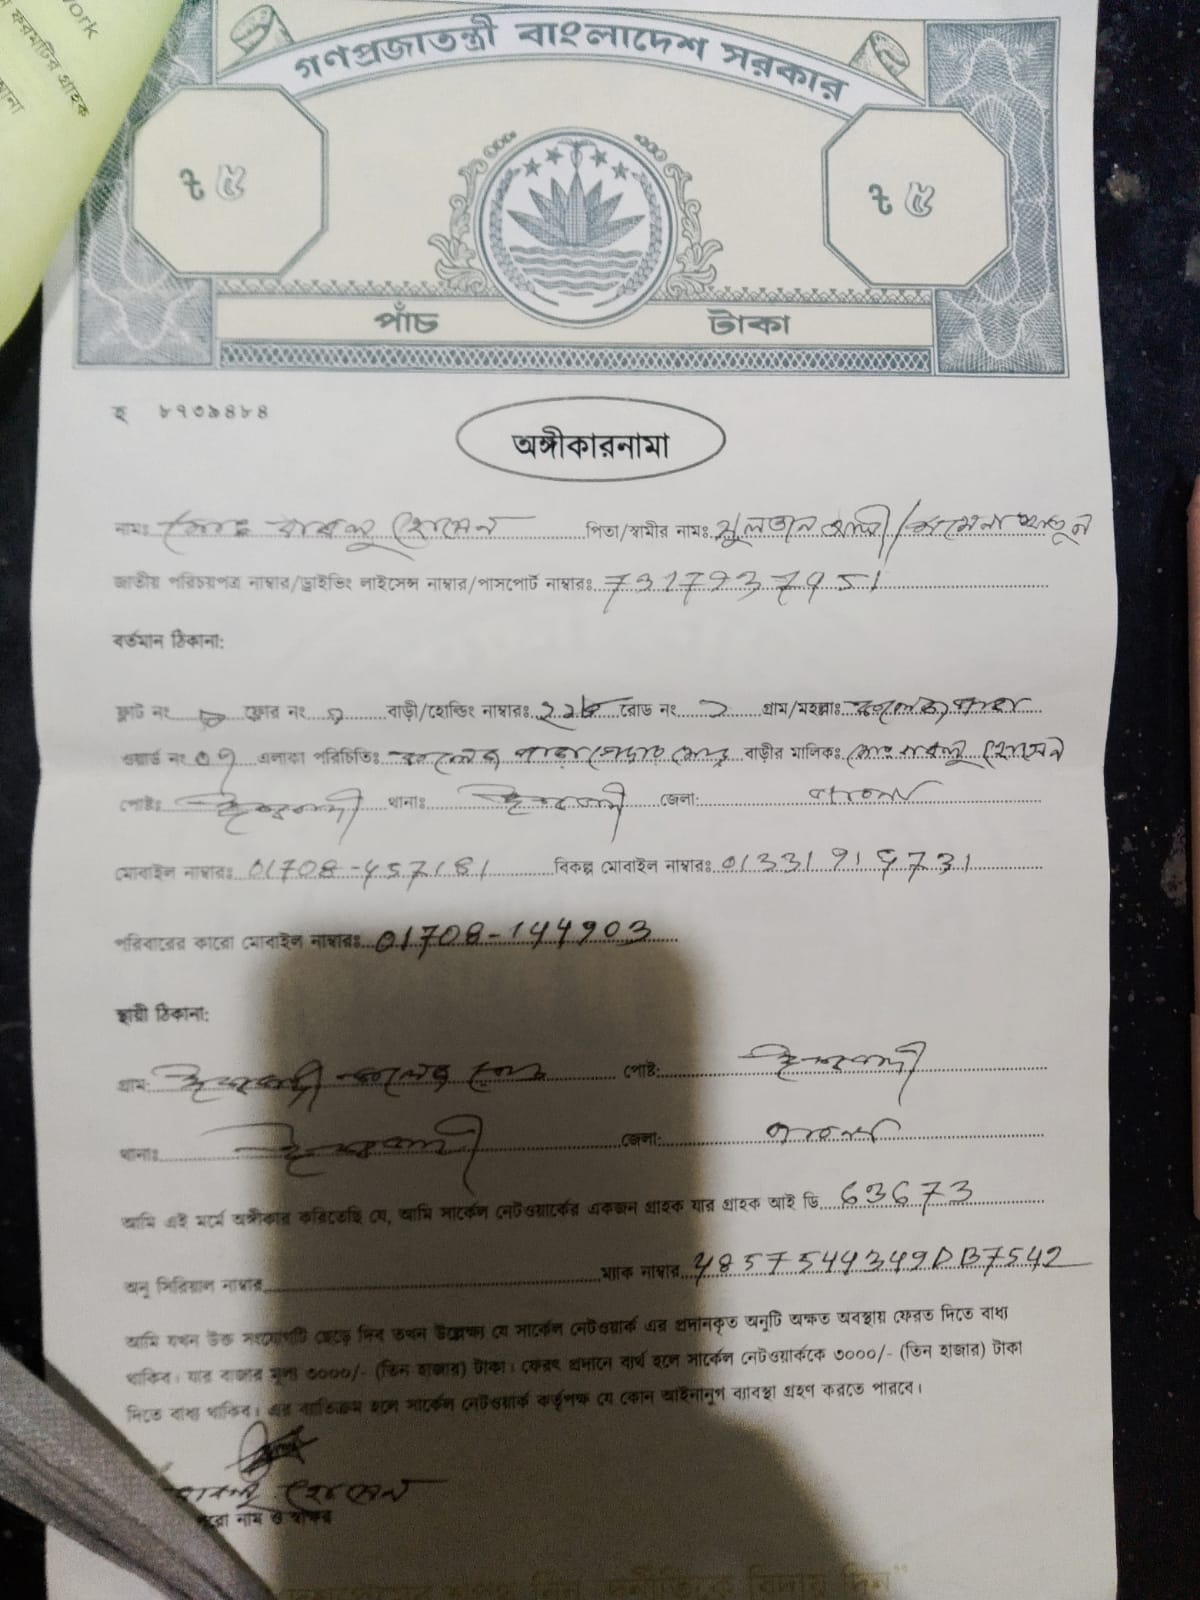 work
ফরমটির গ্রাহক
গণপ্রজাতন্ত্রী বাংলাদেশ সরকার
৳ ৫ ৳ ৫
পাঁচ টাকা
হ ৮৭৩৯৪৮৪
অঙ্গীকারনামা
নামঃ মোঃ বাবলু হোসেন পিতা/স্বামীর নামঃ সুলতান আলী/ খাতুন
জাতীয় পরিচয়পত্র নাম্বার/ড্রাইভিং লাইসেন্স নাম্বার/পাসপোর্ট নাম্বারঃ
বর্তমান ঠিকানা:
ফ্লাট নং ফ্লোর নং বাড়ী/হোল্ডিং নাম্বারঃ রোড নং ১ গ্রাম/মহল্লাঃ
ওয়ার্ড নং ০৭ এলাকা পরিচিতিঃ কলেজ পাড়া মোড় বাড়ীর মালিকঃ মোঃ বাবলু হোসেন
পোষ্টঃ ঈশ্বরদী থানাঃ ঈশ্বরদী জেলা: পাবনা
মোবাইল নাম্বারঃ 01708-457181 বিকল্প মোবাইল নাম্বারঃ
পরিবারের কারো মোবাইল নাম্বারঃ 01708-144903
স্থায়ী ঠিকানা:
গ্রাম: ঈশ্বরদী কলেজ রোড পোষ্ট: ঈশ্বরদী
থানাঃ ঈশ্বরদী জেলা: পাবনা
আমি এই মর্মে অঙ্গীকার করিতেছি যে, আমি সার্কেল নেটওয়ার্কের একজন গ্রাহক যার গ্রাহক আই ডি 63673
অনু সিরিয়াল নাম্বার ম্যাক নাম্বার 4857544349DB7542
আমি যখন উক্ত সংযোগটি ছেড়ে দিব তখন উল্লেক্ষ্য যে সার্কেল নেটওয়ার্ক এর প্রদানকৃত অনুটি অক্ষত অবস্থায় ফেরত দিতে বাধ্য
থাকিব। যার বাজার মূল্য ৩০০০/- (তিন হাজার) টাকা। ফেরৎ প্রদানে ব্যর্থ হলে সার্কেল নেটওয়ার্ককে ৩০০০/- (তিন হাজার) টাকা
দিতে বাধ্য থাকিব। এর ব্যতিক্রম হলে সার্কেল নেটওয়ার্ক কর্তৃপক্ষ যে কোন আইনানুগ ব্যাবস্থা গ্রহণ করতে পারবে।
বাবলু হোসেন
পুরো নাম ও স্বাক্ষর